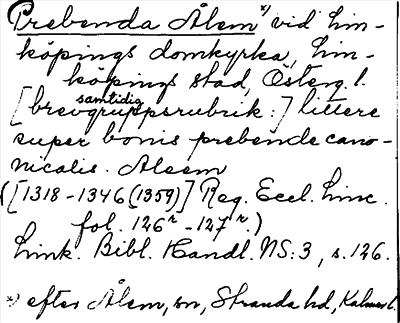 Prebenda Ålem *) vid Lin-
köpings domkyrka, Lin-
köpings stad, Österg. l.
samtidig
[brevgruppsrubrik:] littere
super bonis prebende cano-
nicalis. Aleem
([1318-1346(1359)] Reg. Eccl. Linc.
fol. 126r - 127r.)
Link. Bibl. Handl. NS:3, s. 126.
*) efter Ålem, sn, Stranda hd, Kalmar l.